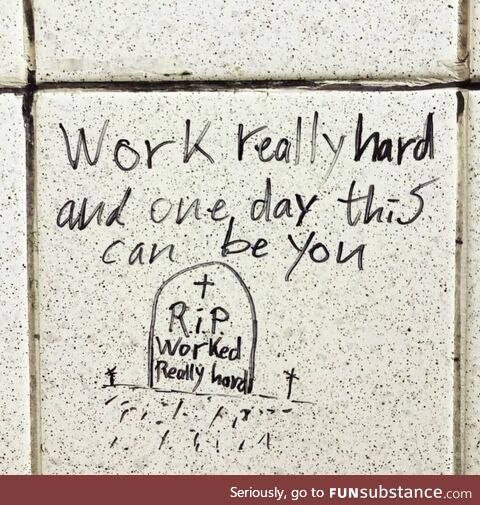 Work really hard
and one day this
can be you
R.i.P.
Worked
Really hard
Seriously, go to FUNsubstance.com